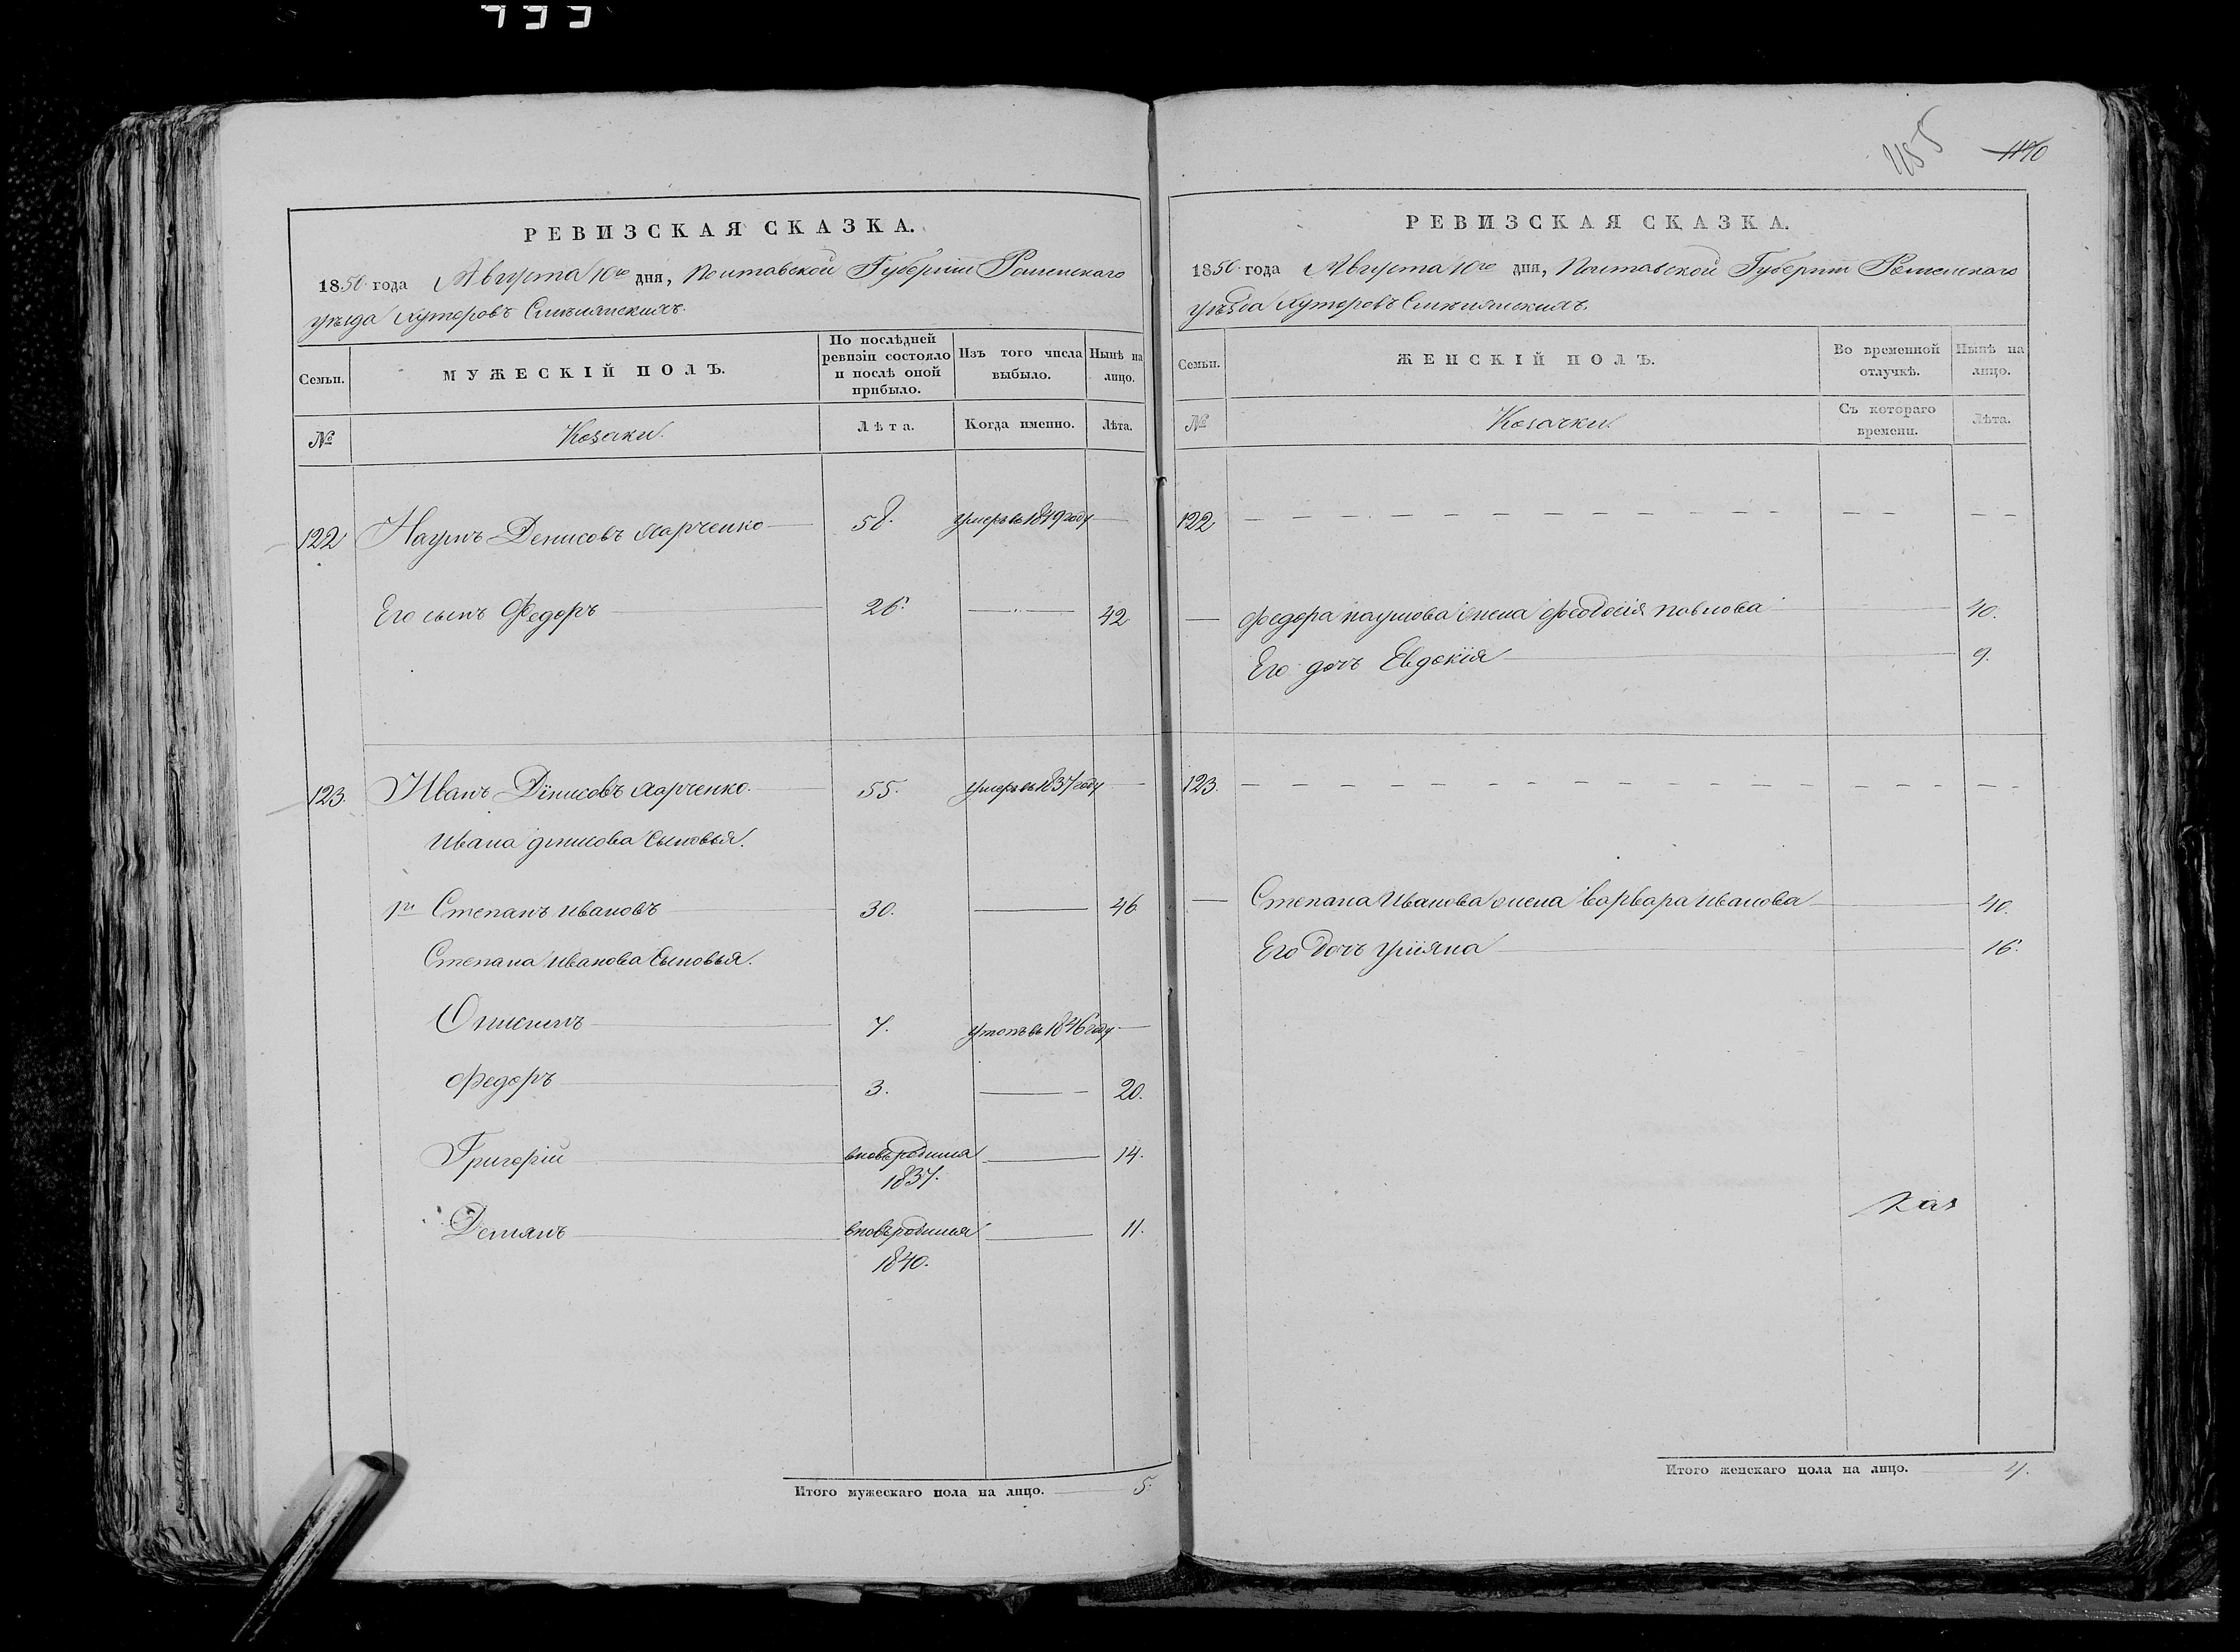 455
1170
РЕВИЗСКАЯ СКАЗКА.
1850 года Августа 10го дня, Полтавской Губерніи Роменскаго
уѣзда Хуторовъ
Семьи.
МУЖЕСКІЙ ПОЛЪ.
По послѣдней ревизіи состояло и послѣ оной прибыло.
Изъ того числа выбыло.
Нынѣ на лицо.
№
Козаки.
Лѣта.
Когда именно.
Лѣта.
122 Наумъ Денисовъ Харченко 58. умеръ въ 1849 году
Его сынъ Федоръ 26. 42
123. Иванъ Денисовъ Харченко. 55. умеръ въ 1837 году
Ивана Денисова сыновья.
1й Степанъ Ивановъ 30. 46
Степана Иванова сыновья.
Онисимъ 7. утопъ въ 1846 году
Федоръ 3. 20.
Григорій вновьродился 14.
1837.
Демянъ вновьродился 11.
1840.
Итого мужескаго пола на лицо. 5.
РЕВИЗСКАЯ СКАЗКА.
1850 года Августа 10го дня, Полтавской Губерніи Роменскаго
уѣзда Хуторовъ
Семьи.
ЖЕНСКІЙ ПОЛЪ.
Во временной отлучкѣ.
Нынѣ на лицо.
№
Козачки.
Съ котораго времени.
Лѣта.
122
Федора Наумова жена Феодосія Павлова 40.
Его дочь Евдокія 9.
123.
Степана Иванова жена Варвара Иванова 40.
Его дочь Уліяна 16.
Итого женскаго пола на лицо. 4.